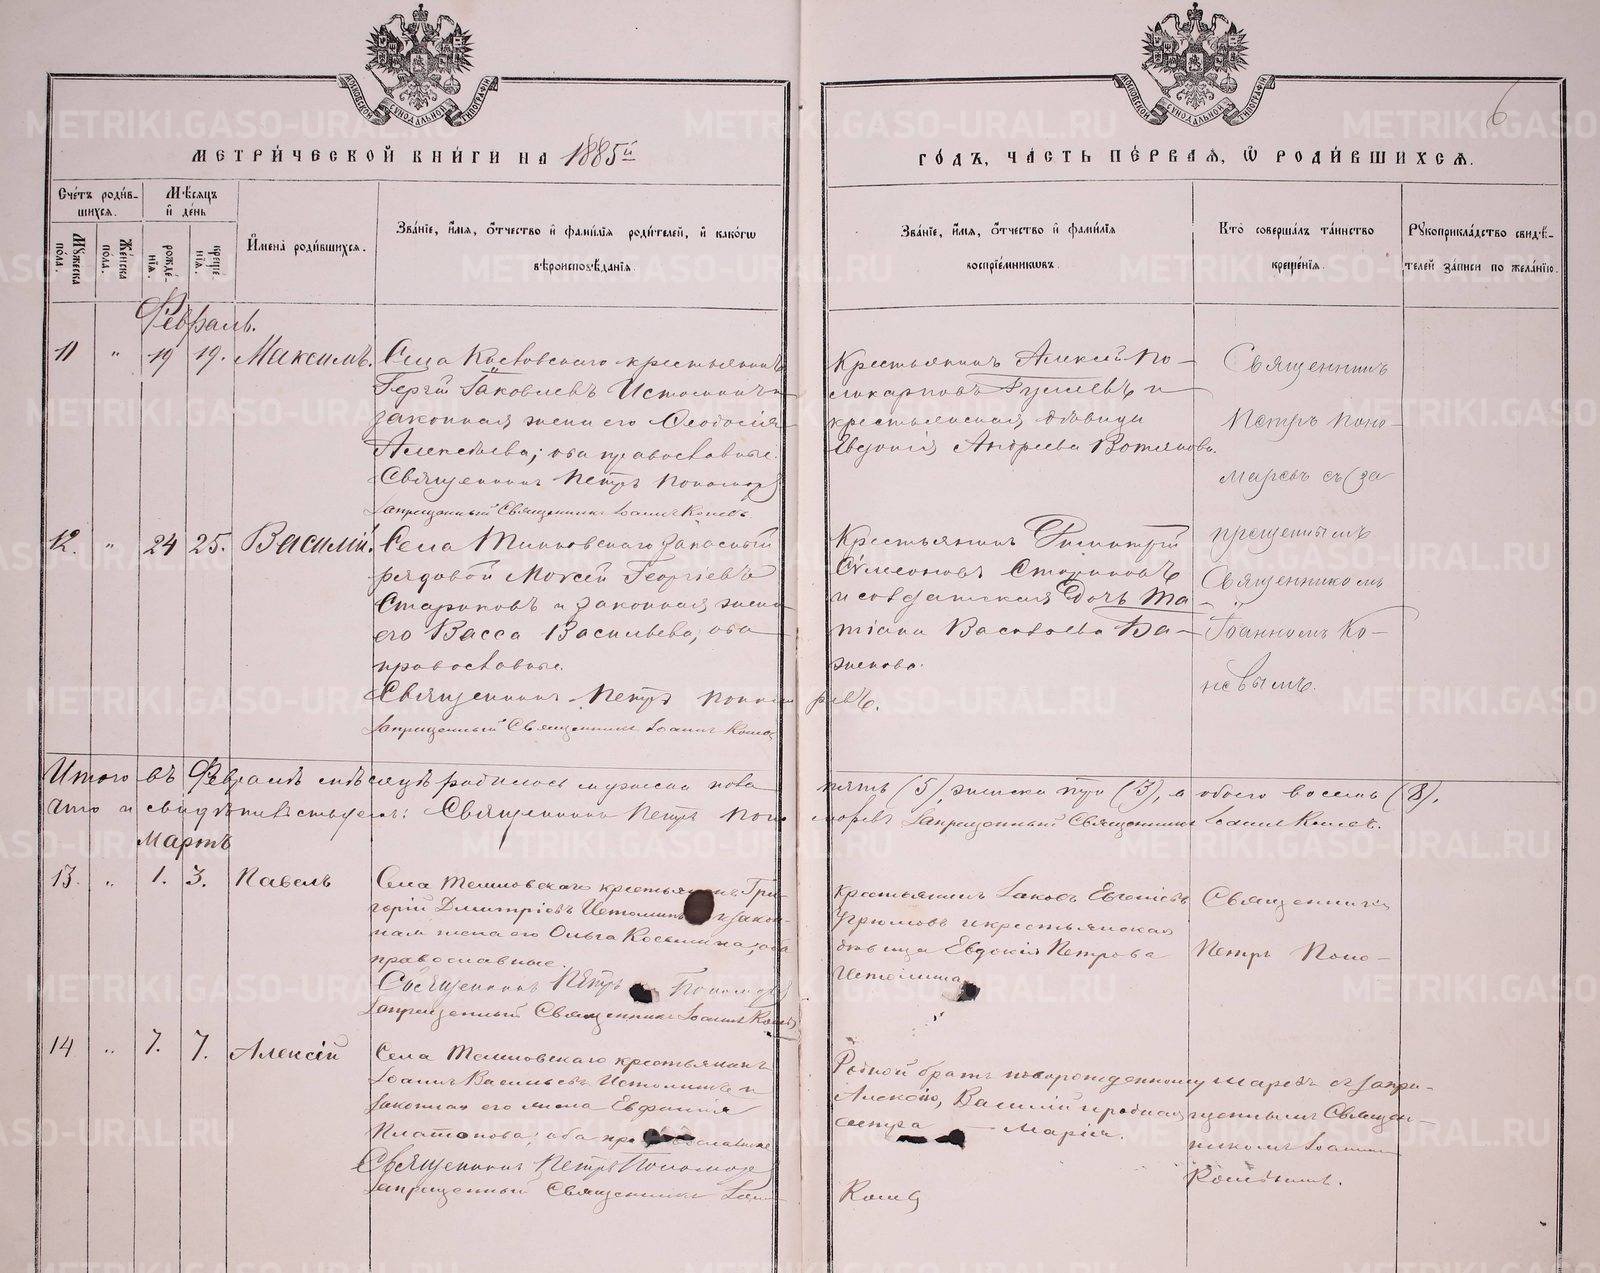 6
МЕТРИ́ЧЕСКОЙ КНИ́ГИ НА 1885й
ГО́ДЪ, ЧА́СТЬ ПЕ́РВАЯ, Ѡ РОДИ́ВШИХСѦ.
Сче́тъ роди́в-
шихсѧ.
Мѣ́сѧцъ
и҆ де́нь
Мꙋжеска
пола.
Же́нска
пола.
рожде́-
нїѧ.
креще́-
нїѧ.
И҆мена̀ роди́вшихсѧ.
Зва́нїе, и҆́мѧ, ѻ҆́тчество и҆ фами́лїѧ роди́телей, и҆ како́гѡ
вѣроисповѣ́данїѧ.
Зва́нїе, и҆́мѧ, ѻ҆́тчество и҆ фами́лїѧ
воспрїе́мникѡвъ.
Кто̀ соверша́лъ та́инство
креще́нїѧ.
Рꙋкоприкла́дство свидѣ́-
телей за́писи по жела́нїю.
Февраль.
11 " 19 19. Максимъ.
Села крестьянинъ
Гергій Іаковлевъ Истоминъ и
законная жена его Ѳеодосія
Алексѣева; оба православные.
Священникъ Петръ Пономар
Запрещенный Священникъ Іоаннъ
Крестьянинъ Алексѣй По-
ликарповъ и
крестьянская дѣвица
Евдокія Андреева Вотякова.
Священникъ
Петръ Поно-
маревъ съ за
прещеннымъ
Священникомъ
Іоанномъ Ко-
12. " 24 25. Василій.
Села запасный
рядовой Моисей Георгіевъ
Стариковъ и законная жена
его Васса Васильева, оба
православные.
Священникъ Петръ Поном
ревъ.
Запрещенный Священникъ Іоаннъ
Крестьянинъ Димитрій
Симеоновъ Стариковъ
и солдатская дочь Та-
тіана Ва-
женова.
Итого въ Февралѣ мѣсяцѣ родилось мужеска пола
пять (5), женска три (3), а обоего восемь (8).
что и свидѣтельствуемъ: Священникъ Петръ Поно
маревъ Запрещенный Священникъ Іоаннъ
Мартъ
13. " 1. 3. Павелъ
Села крестьянинъ Гри-
горій Дмитріевъ Истоминъ и закон-
ная жена его Ольга Косьмина, оба
православные.
Священникъ Петръ Пономар
Запрещенный Священникъ Іоаннъ
Крестьянинъ Іаковъ
Угрюмовъ и крестьянская
дѣвица Евдокія Петрова
Истомина
Священникъ
Петръ Поно-
14 " 7. 7. Алексій
Села крестьянинъ
Іоаннъ Васильевъ Истоминъ и
законная его жена
Платонова; оба православные
Священникъ Петръ Пономар
Запрещенный Священникъ Іоан
Родной братъ новорожденному
Алексію, Василій и родная
сестра Марія.
маревъ съ запре-
щеннымъ Священ-
никомъ Іоанномъ